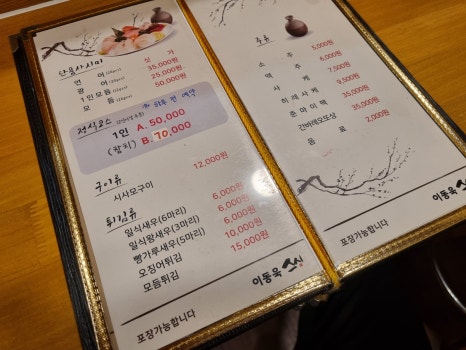 단품사시미 싯가
연어(10pcs) 35,000원
광어(10pcs) 25,000원
1인모듬(10pcs) 50,000원
모듬
정식코스 하루 전 예약
1인 A. 50,000
(참치) B. 70,000
구이류
시사모구이 12,000원
튀김류
일식새우(6마리) 6,000원
일식왕새우(3마리) 6,000원
빵가루새우(5마리) 6,000원
오징어튀김 10,000원
모듬튀김 15,000원
이동욱 스시
포장가능합니다
주류
소주 5,000원
맥주 5,000원
사케 7,500원
히레사케 9,500원
준마이팩 35,000원
간바레오또상 35,000원
음료 2,000원
이동욱 스시
포장가능합니다